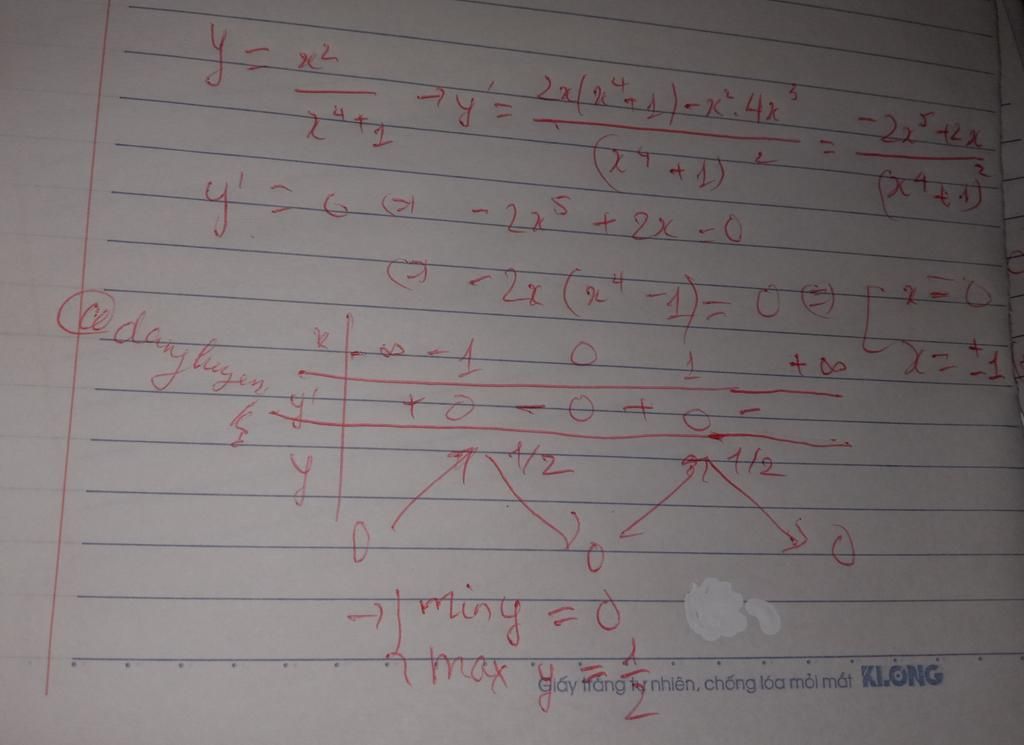 y = x²/(x⁴+1) → y' = (2x(x⁴+1) - x².4x³)/(x⁴+1)² = (-2x⁵+2x)/(x⁴+1)²
y' = 0 ⇔ -2x⁵ + 2x = 0
⇔ -2x(x⁴ - 1) = 0 ⇔ [ x = 0
x = ±1
@danghuyen
x | -∞ -1 0 1 +∞
y' | + 0 - 0 + 0 -
y | 0 ↗ 1/2 ↘ 0 ↗ 1/2 ↘ 0
→ { min y = 0
max y = 1/2
Giấy trắng tự nhiên, chống lóa mỏi mắt KLONG